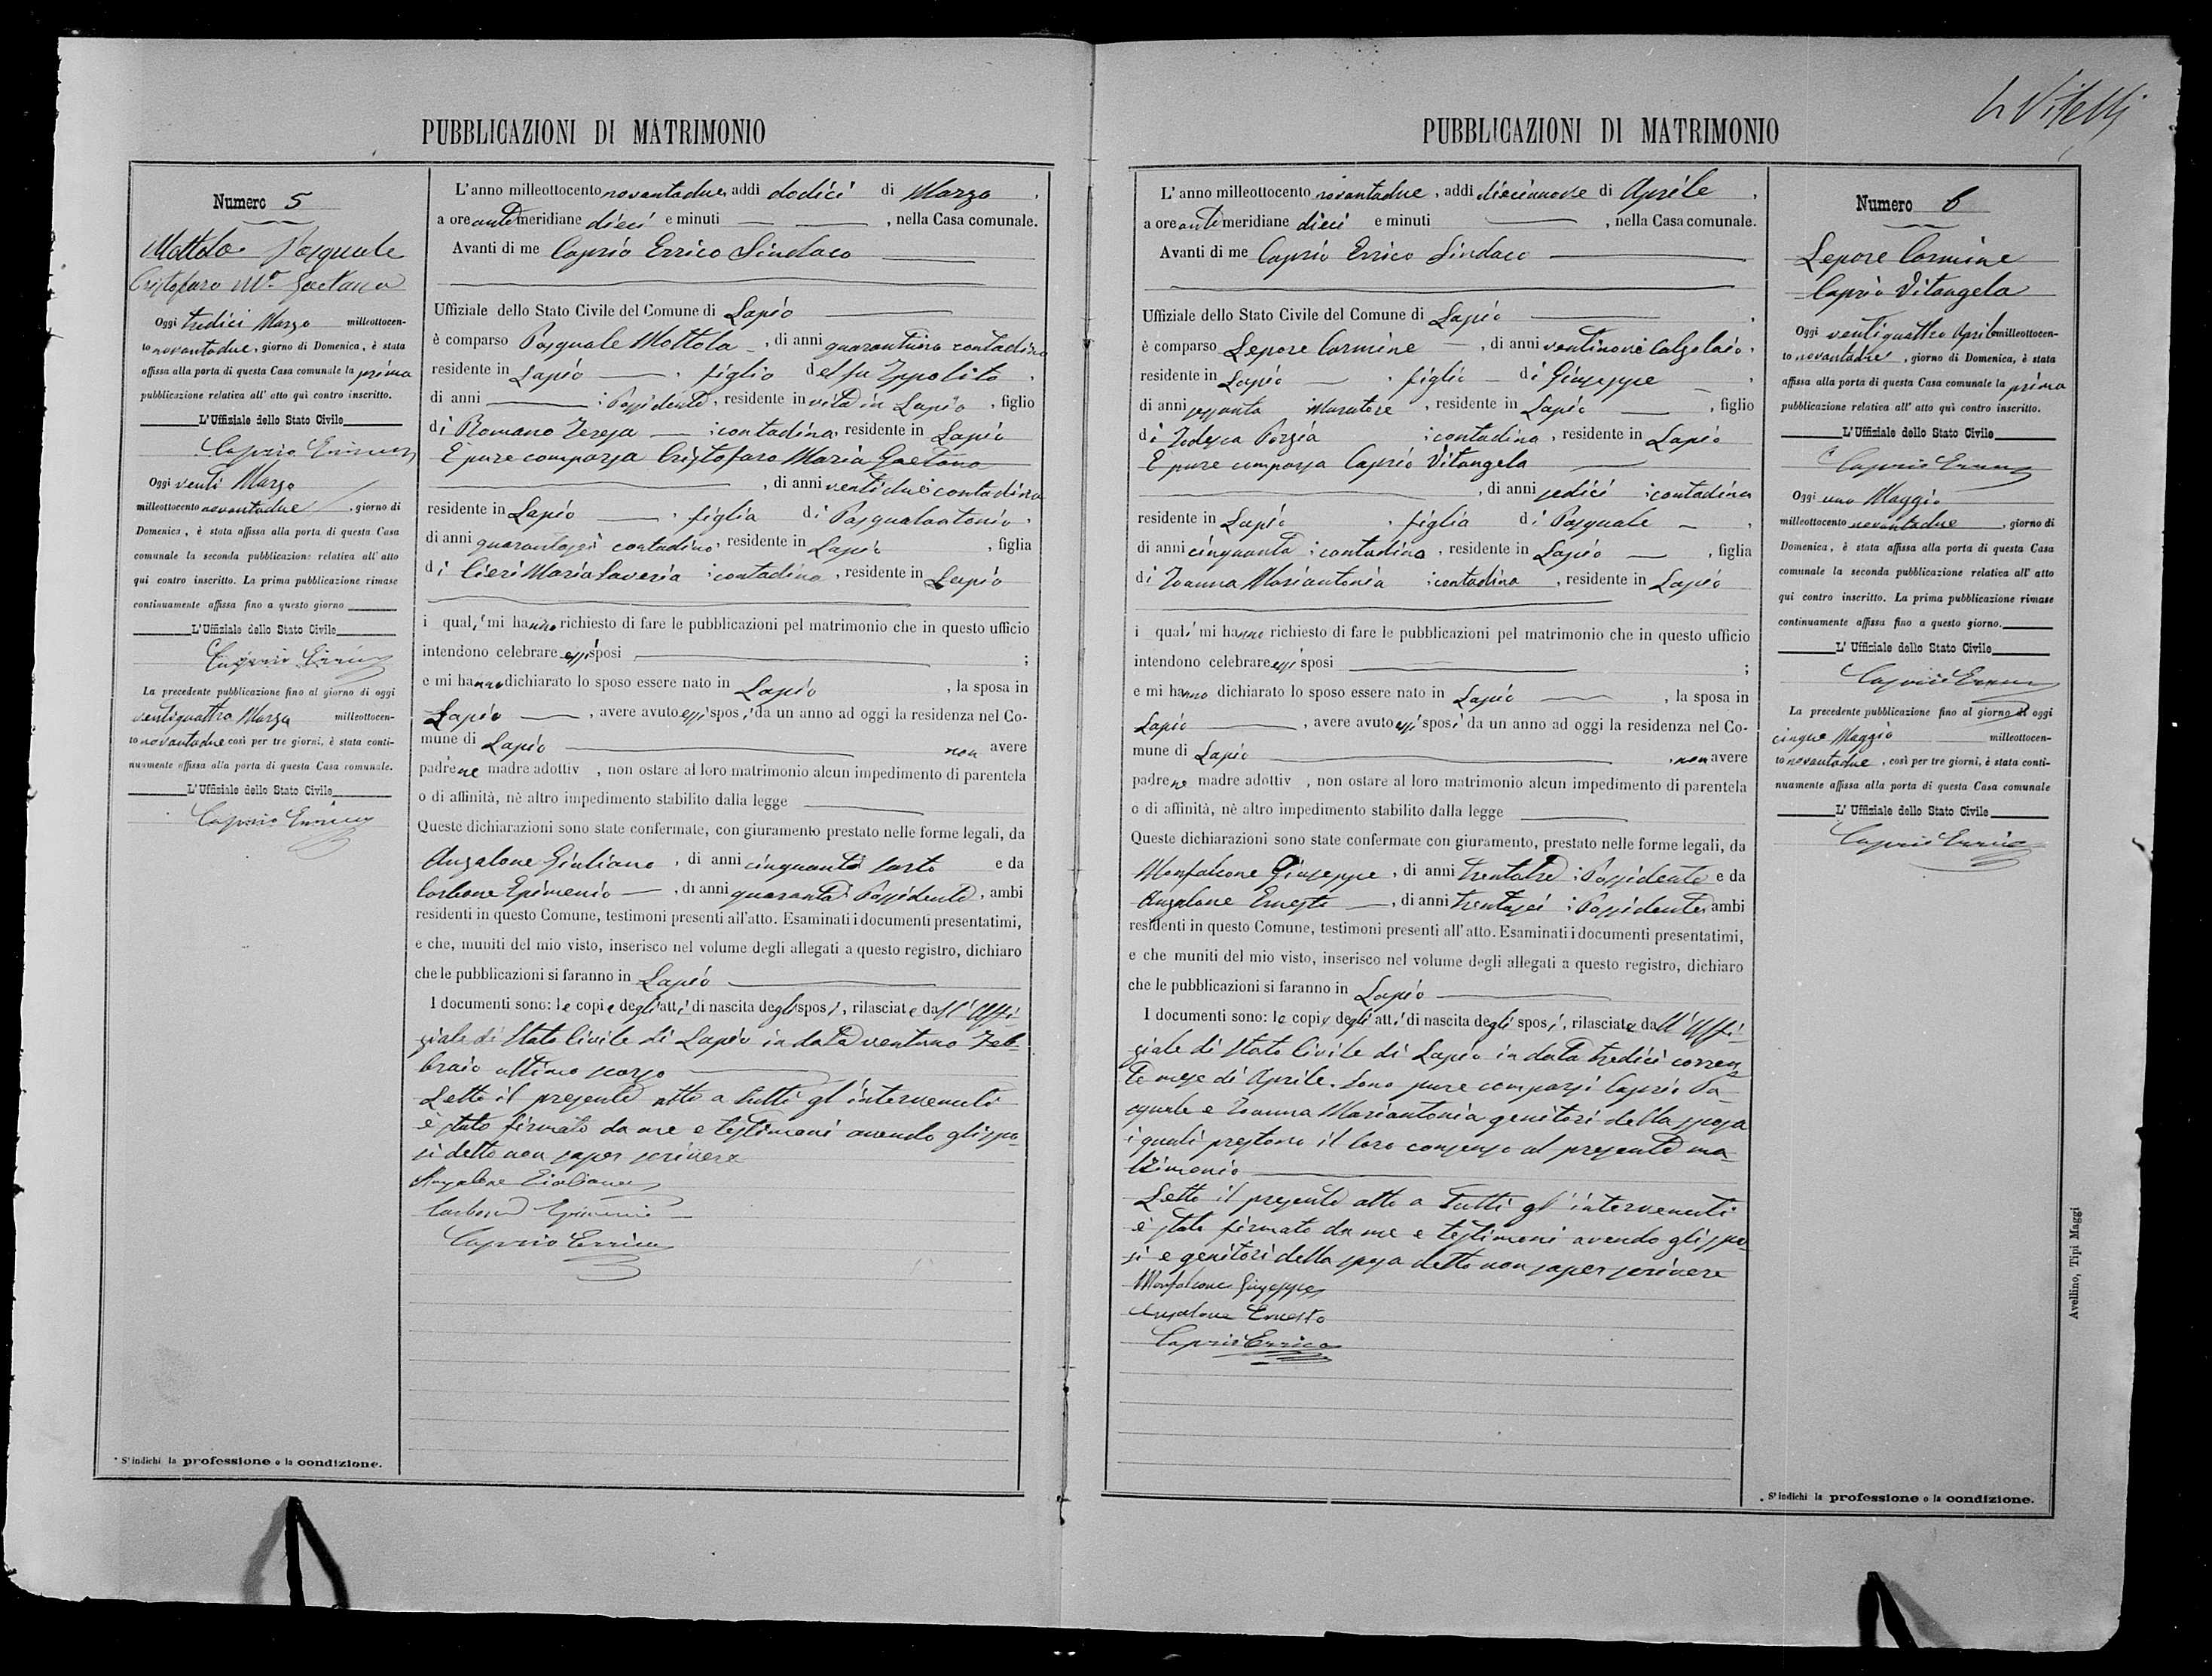 PUBBLICAZIONI DI MATRIMONIO
Numero 5
Mottola Pasquale
Cristofaro Mª Gaetana
Oggi tredici Marzo milleottocen-
to novantadue, giorno di Domenica, è stata
affissa alla porta di questa Casa comunale la prima
pubblicazione relativa all' atto quì contro inscritto.
L'Uffiziale dello Stato Civile
Caprio Errico
Oggi venti Marzo
milleottocento novantadue, giorno di
Domenica, è stata affissa alla porta di questa Casa
comunale la seconda pubblicazione relativa all' atto
qui contro inscritto. La prima pubblicazione rimase
continuamente affissa fino a questo giorno
L'Uffiziale dello Stato Civile
Caprio Errico
La precedente pubblicazione fino al giorno di oggi
ventiquattro Marzo milleottocen-
to novantadue così per tre giorni, è stata conti-
nuamente affissa alla porta di questa Casa comunale.
L'Uffiziale dello Stato Civile
Caprio Errico
* S'indichi la professione o la condizione.
L'anno milleottocento novantadue, addì dodici di Marzo,
a ore antimeridiane dieci e minuti , nella Casa comunale.
Avanti di me Caprio Errico Sindaco
Uffiziale dello Stato Civile del Comune di Lapio
è comparso Pasquale Mottola, di anni quarantuno contadino
residente in Lapio, figlio del fu Ippolito,
di anni : Possidente, residente in vita in Lapio, figlio
di Romano Teresa : contadina residente in Lapio
È pure comparsa Cristofaro Maria Gaetana
, di anni ventidue contadina
residente in Lapio, figlia di Pasqualantonio,
di anni quarantasei contadino, residente in Lapio, figlia
di Cieri Maria Saveria : contadina, residente in Lapio
i quali mi hanno richiesto di fare le pubblicazioni pel matrimonio che in questo ufficio
intendono celebrare essi sposi ;
e mi hanno dichiarato lo sposo essere nato in Lapio, la sposa in
Lapio, avere avuto essi sposi da un anno ad oggi la residenza nel Co-
mune di Lapio non avere
padre ne madre adottiv , non ostare al loro matrimonio alcun impedimento di parentela
o di affinità, nè altro impedimento stabilito dalla legge
Queste dichiarazioni sono state confermate, con giuramento prestato nelle forme legali, da
Anzalone Giuliano, di anni cinquanta sarto e da
Carbone Epimenio, di anni quaranta : Possidente, ambi
residenti in questo Comune, testimoni presenti all'atto. Esaminati i documenti presentatimi,
e che, muniti del mio visto, inserisco nel volume degli allegati a questo registro, dichiaro
che le pubblicazioni si faranno in Lapio
I documenti sono: le copie degli atti di nascita degli sposi, rilasciate dall'Uffi-
ziale di Stato Civile di Lapio in data ventuno Feb-
braio ultimo scorso
Letto il presente atto a tutti gl'intervenuti
è stato firmato da me e testimoni avendo gli spo-
si detto non saper scrivere
Anzalone Giuliano
Carbone Epimenio
Caprio Errico
PUBBLICAZIONI DI MATRIMONIO
L'anno milleottocento novantadue, addì diciannove di Aprile,
a ore antimeridiane dieci e minuti , nella Casa comunale.
Avanti di me Caprio Errico Sindaco
Uffiziale dello Stato Civile del Comune di Lapio
è comparso Lepore Carmine, di anni ventinove Calzolaio,
residente in Lapio, figlio di Giuseppe,
di anni sessanta Muratore, residente in Lapio, figlio
di Tedesca Porzia : contadina, residente in Lapio
È pure comparsa Caprio Vitangela
, di anni sedici : contadina
residente in Lapio, figlia di Pasquale,
di anni cinquanta : contadino, residente in Lapio, figlia
di Ioanna Mariantonia : contadina, residente in Lapio
i quali mi hanno richiesto di fare le pubblicazioni pel matrimonio che in questo ufficio
intendono celebrare essi sposi ;
e mi hanno dichiarato lo sposo essere nato in Lapio, la sposa in
Lapio, avere avuto essi sposi da un anno ad oggi la residenza nel Co-
mune di Lapio, non avere
padre ne madre adottiv , non ostare al loro matrimonio alcun impedimento di parentela
o di affinità, nè altro impedimento stabilito dalla legge
Queste dichiarazioni sono state confermate con giuramento, prestato nelle forme legali, da
Monfalcone Giuseppe, di anni trentatre : Possidente e da
Anzalone Ernesto, di anni trentasei : Possidente ambi
residenti in questo Comune, testimoni presenti all' atto. Esaminati i documenti presentatimi,
e che muniti del mio visto, inserisco nel volume degli allegati a questo registro, dichiaro
che le pubblicazioni si faranno in Lapio
I documenti sono: le copie degli atti di nascita degli sposi, rilasciate dall'Uffi-
ziale di Stato Civile di Lapio in data tredici corren-
te mese di Aprile. Sono pure comparsi Caprio Pa-
squale e Ioanna Mariantonia genitori della sposa
i quali prestano il loro consenso al presente ma-
trimonio
Letto il presente atto a tutti gl'intervenuti
è stato firmato da me e testimoni avendo gli spo-
si e genitori della sposa detto non saper scrivere
Monfalcone Giuseppe
Anzalone Ernesto
Caprio Errico
Numero 6
Lepore Carmine
Caprio Vitangela
Oggi ventiquattro Aprile milleottocen-
to novantadue, giorno di Domenica, è stata
affissa alla porta di questa Casa comunale la prima
pubblicazione relativa all' atto quì contro inscritto.
L'Uffiziale dello Stato Civile
Caprio Errico
Oggi uno Maggio
milleottocento novantadue, giorno di
Domenica, è stata affissa alla porta di questa Casa
comunale la seconda pubblicazione relativa all' atto
qui contro inscritto. La prima pubblicazione rimase
continuamente affissa fino a questo giorno.
L' Uffiziale dello Stato Civile
Caprio Errico
La precedente pubblicazione fino al giorno di oggi
cinque Maggio milleottocen-
to novantadue, così per tre giorni, è stata conti-
nuamente affissa alla porta di questa Casa comunale
L' Uffiziale dello Stato Civile
Caprio Errico
* S'indichi la professione o la condizione.
Avellino, Tipi Maggi